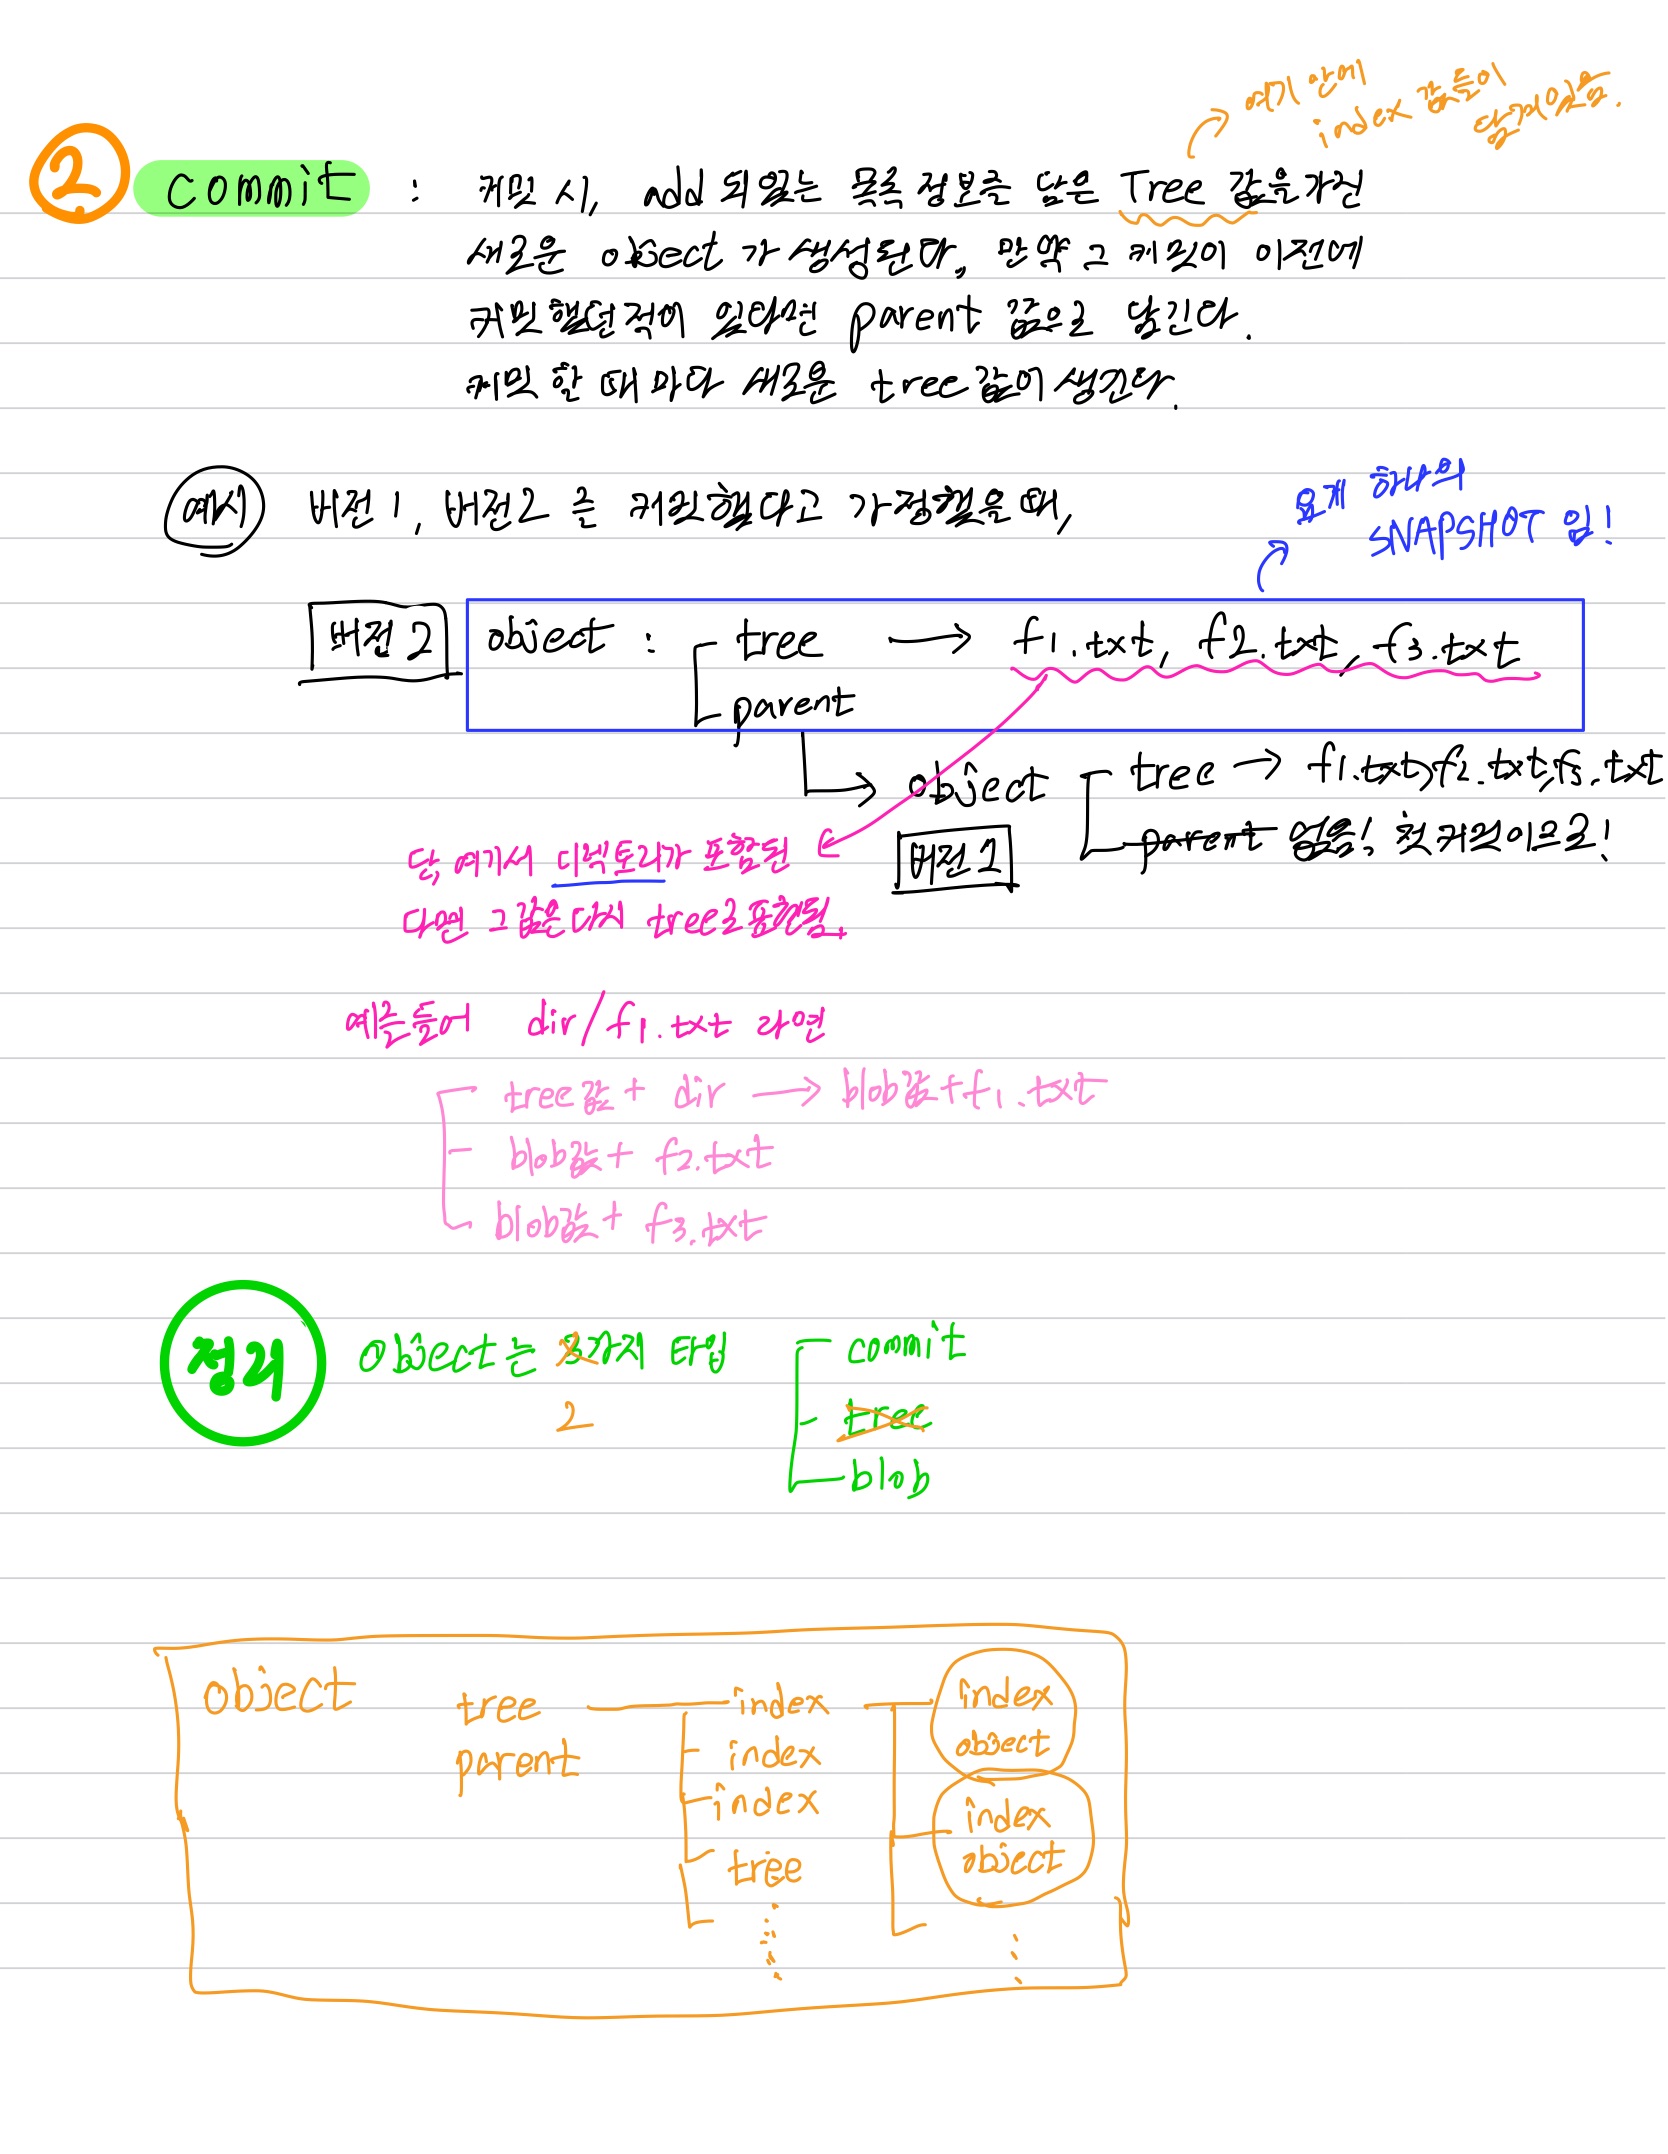 여기 안에
index 값들이
담겨있음.
② commit : 커밋 시, add 되있는 목록 정보를 담은 Tree 값을 가진
새로운 object 가 생성된다, 만약 그 커밋이 이전에
커밋했던적이 있다면 parent 값으로 남긴다.
커밋 할 때 마다 새로운 tree값이 생긴다.
예시 버전1, 버전2 를 커밋했다고 가정했을 때,
요게 하나의
SNAPSHOT 임!
버전 2 object : tree → f1.txt, f2.txt, f3.txt
parent
→ object tree → f1.txt, f2.txt, f3.txt
버전 1 parent 없음! 첫 커밋이므로!
단, 여기서 디렉토리가 포함된
다면 그 값은 다시 tree로 표현됨.
예를들어 dir/f1.txt 라면
tree값 + dir → blob값+f1.txt
blob값+ f2.txt
blob값+ f3.txt
정리 object는 3가지 타입 commit
2 tree
blob
object tree index index
object
parent index
index index
object
tree